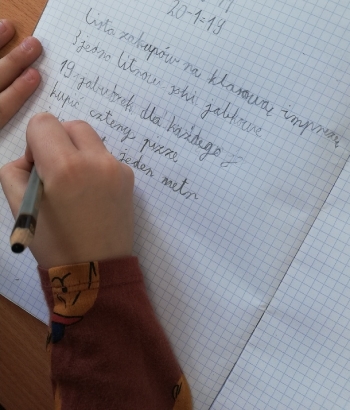 20-1=19
Lista zakupów na klasową imprezę
jedno litrowe soki jabłkowe
19 jabłuszek dla każdego
kupić cztery pizze
jeden metr